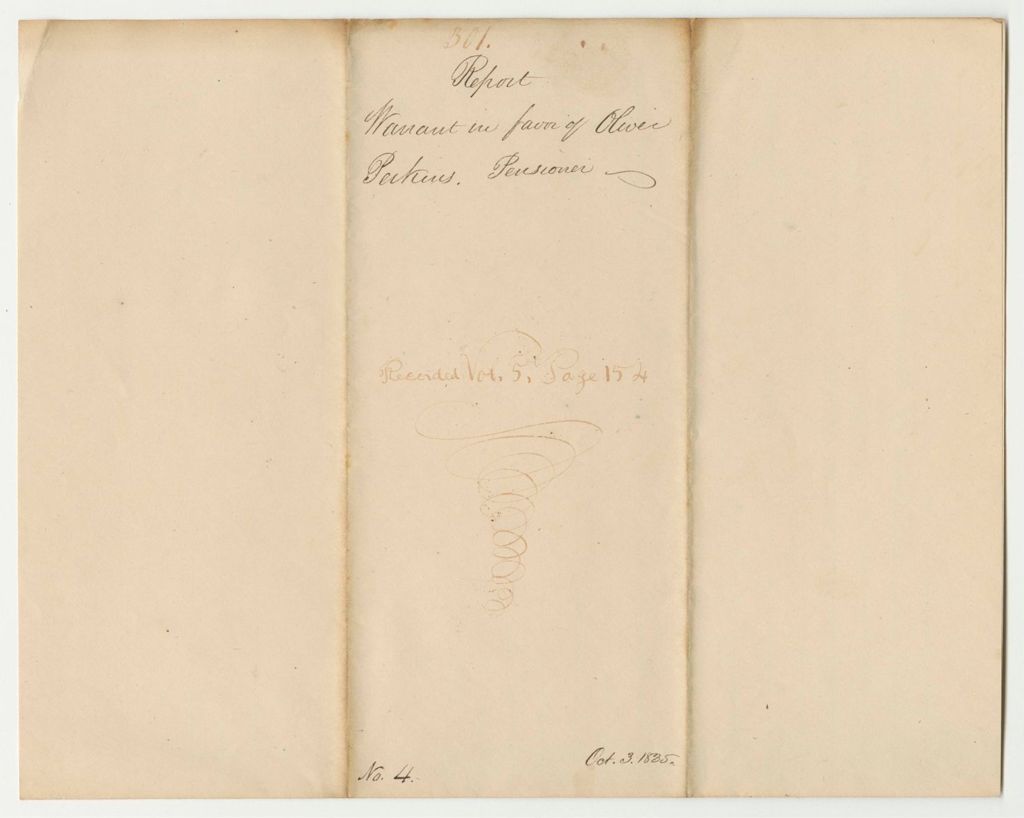 301.
Report
Warrant in favor of Oliver
Perkins. Pensioner
Recorded Vol. 5, Page 154
No. 4.
Oct. 3. 1835.